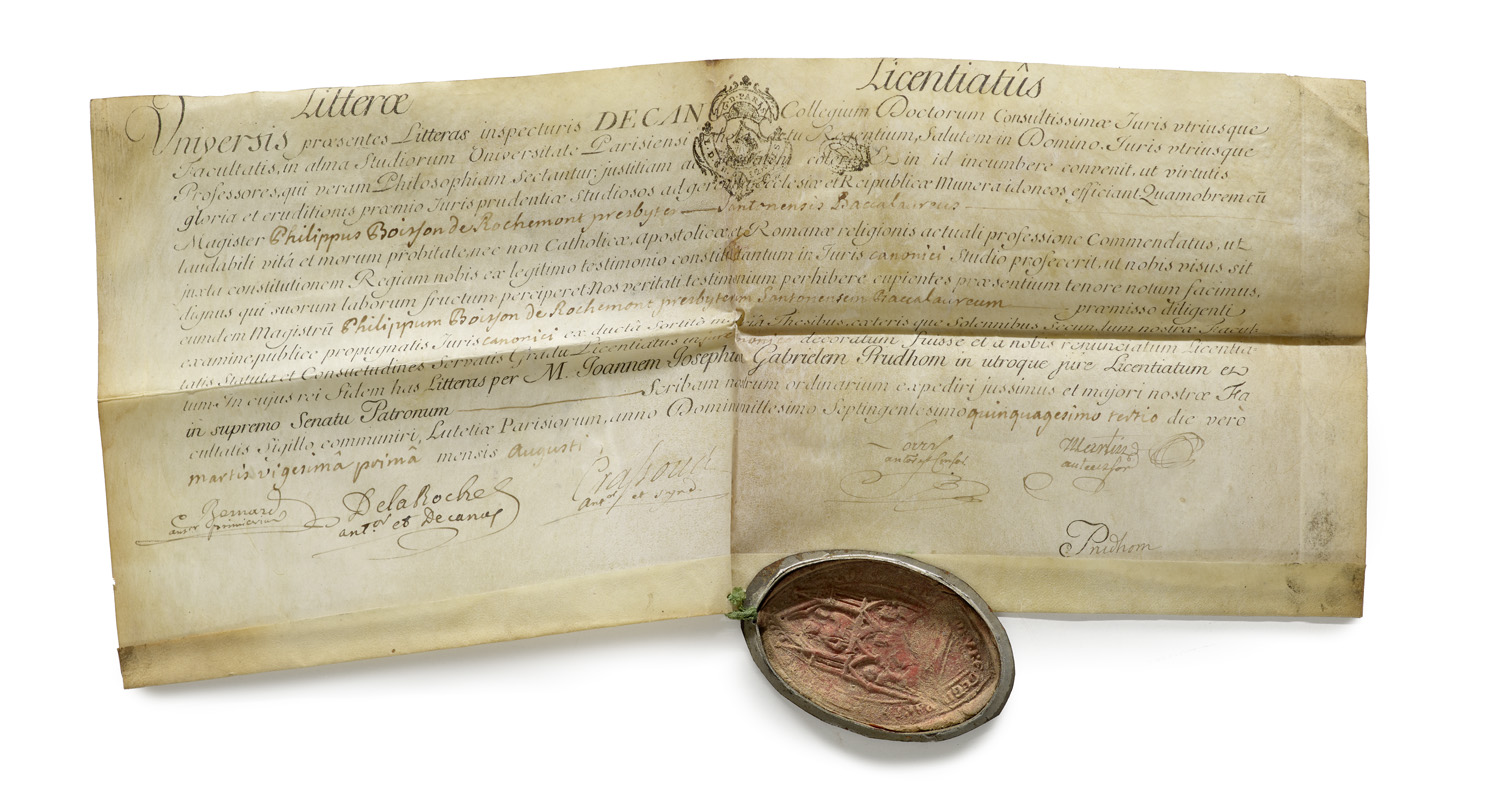 Litteræ Licentiatûs
Vniversis præsentes Litteras inspecturis DECAN Collegium Doctorum Consultissimæ Juris vtriusque
Facultatis, in alma Studiorum Vniversitate Parisiensi Regentium, Salutem in Domino. Juris vtriusque
Professores, qui veram Philosophiam Sectantur, justitiam colere, et in id incumbere convenit, ut virtutis
gloria et eruditionis præmio Juris prudentiæ Studiosos ad Ecclesiæ et Reipublicæ Munera idoneos efficiant. Quamobrem cū
Magister Philippus Boisson de Rochemont presbyter Santonensis Baccalaureus
laudabili vitâ et morum probitate, nec non Catholicæ, Apostolicæ et Romanæ religionis actuali professione Commendatus, ut
juxta constitutionem Regiam nobis ex legitimo testimonio constitit, tantum in Juris canonici Studio profecerit, ut nobis visus sit
dignus qui suorum laborum fructum perciperet. Nos veritati testimonium perhibere cupientes præsentium tenore notum facimus,
eumdem Magistrū Philippum Boisson de Rochemont presbyterum Santonensem Baccalaureum præmisso diligenti
examine, publice propugnatis Juris canonici ex ductâ Sortito materiâ Thesibus, cæteris que Solennibus Secundum nostræ Facul-
tatis Statuta et Consuetudines Servatis Gradu Licentiatus in Jure canonico decoratum fuisse et a nobis renunciatum Licentia-
tum. In cujus rei Fidem has Litteras per M. Joannem Josephum Gabrielem Prudhom in utroque jure Licentiatum et
in supremo Senatu Patronum Scribam nostrum ordinarium expediri jussimus et majori nostræ Fa
cultatis Sigillo communiri, Lutetiæ Parisiorum, anno Domini millesimo Septingentesimo quinquagesimo tertio die verò
martis vigesimâ primâ mensis Augusti
Bernard
DelaRoche
antor et Decanus
antor et Synd.
antor et Consor
Martin
antecessor
Prudhom